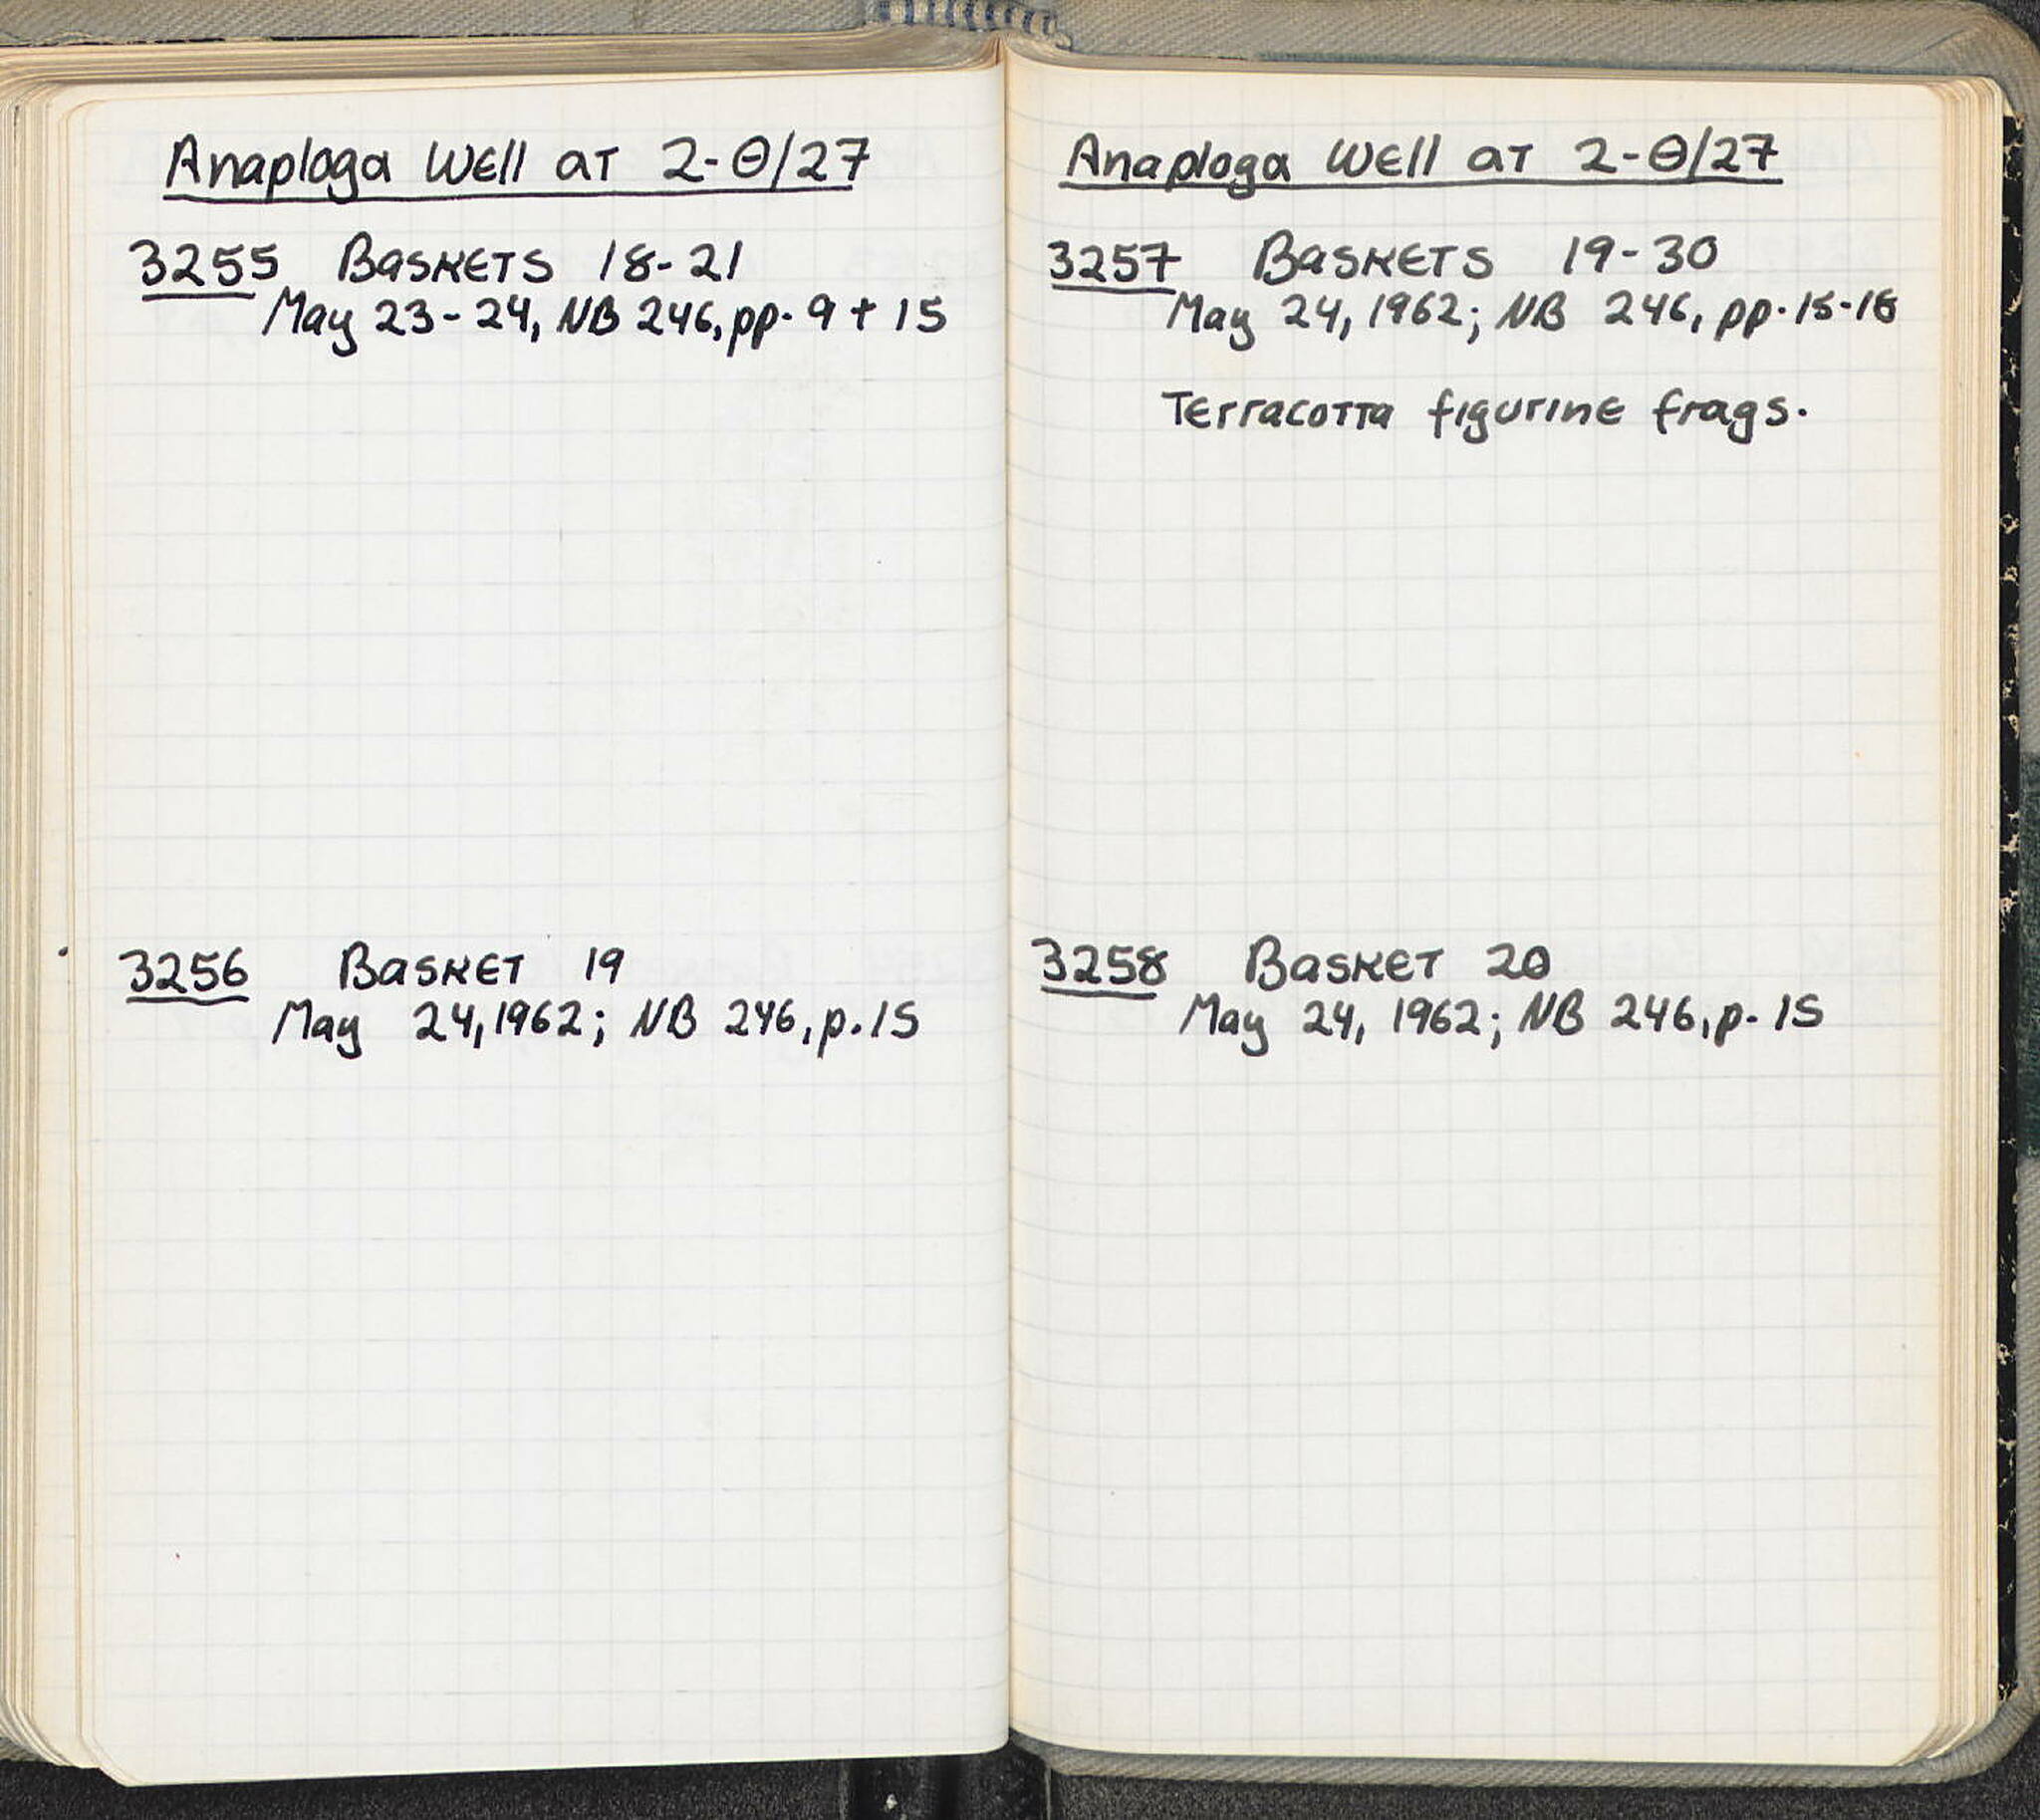 Anaploga Well at 2-Θ/27
3255 Baskets 18-21
May 23-24, NB 246, pp. 9 + 15
3256 Basket 19
May 24, 1962; NB 246, p. 15
Anaploga Well at 2-Θ/27
3257 Baskets 19-30
May 24, 1962; NB 246, pp. 15-18
Terracotta figurine frags.
3258 Basket 20
May 24, 1962; NB 246, p. 15